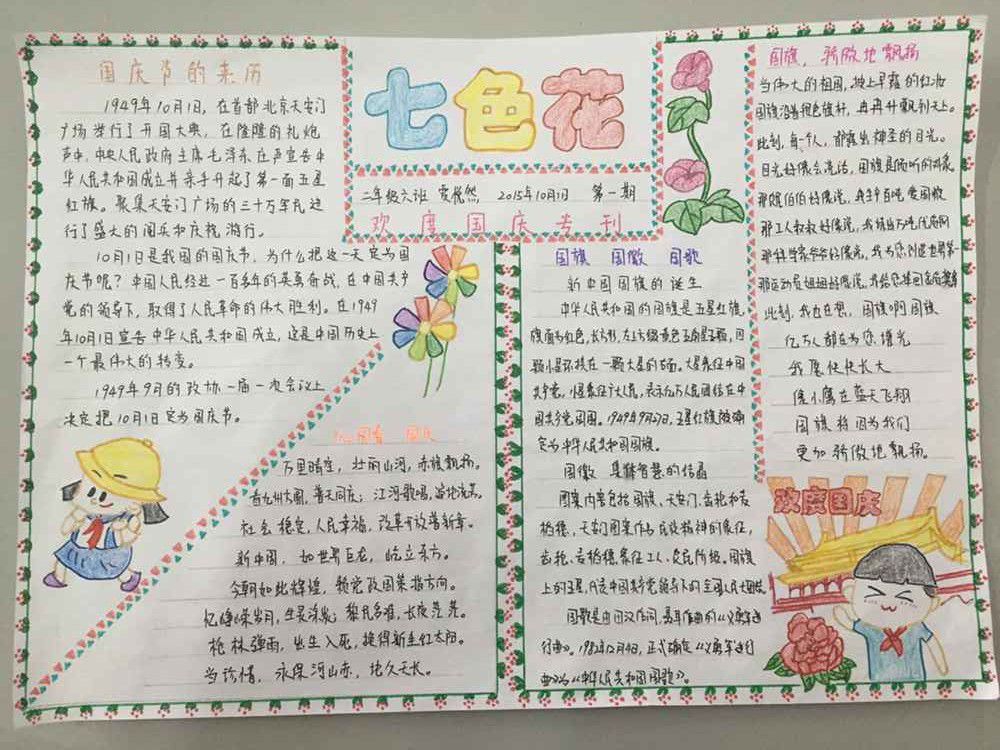 国庆节的来历
1949年10月1日，在首都北京天安门
广场举行了开国大典，在隆隆的礼炮
声中，中央人民政府主席毛泽东庄严宣告中
华人民共和国成立并亲手升起了第一面五星
红旗。聚集天安门广场的三十万军民进
行了盛大的阅兵和庆祝游行。
10月1日是我国的国庆节，为什么把这一天定为国
庆节呢？中国人民经过一百多年的英勇奋战，在中国共产
党的领导下，取得了人民革命的伟大胜利。在1949
年10月1日宣告中华人民共和国成立，这是中国历史上
一个最伟大的转变。
1949年9月的政协一届一次会议上
决定把10月1日定为国庆节。
七色花
二年级六班 2015年10月1日 第一期
欢度国庆专刊
国庆
万里晴空，壮丽山河，赤旗飘扬。
看九州方圆，普天同庆；江河歌唱，
社会稳定，人民幸福，改革开放谱新章。
新中国，如世界巨龙，屹立东方。
今朝如此辉煌，赖党政国策指方向。
忆峥嵘岁月，生灵涂炭；黎民多难，长夜茫茫。
枪林弹雨，出生入死，换得新生红太阳。
当珍惜，永保河山赤，地久天长。
国旗 国徽 国歌
新中国国旗的诞生
中华人民共和国的国旗是五星红旗，
旗面为红色，长方形，左上方缀黄色五角星五颗，四
颗小星环拱在一颗大星的右面。大星象征中国
共产党，小星象征广大人民，表示亿万人民团结在中
国共产党周围。1949年9月27日，五星红旗被确
定为中华人民共和国国旗。
国徽 集聚智慧的结晶
图案内容包括国旗、天安门、齿轮和麦
稻穗，天安门图案作为民族精神的象征，
齿轮、麦稻穗象征工人、农民阶级。国旗
上的五星，代表中国共产党领导下的全国人民大团结。
国歌是由田汉作词，聂耳作曲的《义勇军进
行曲》。1982年12月4日，正式确定《义勇军进行
曲》为《中华人民共和国国歌》。
国旗，骄傲地飘扬
当伟大的祖国，披上早霞的红妆
国旗沿着银色旗杆，冉冉升飘到天上。
此刻，每一个人，都露出神圣的目光。
目光好像会说话，国旗是倾听的对象
那工人叔叔好像说，我铺出万吨优质钢
那科学家爷爷好像说，
那运动员姐姐好像说，
此刻，我也在想，国旗啊国旗
亿万人都在为您增光
我愿快快长大
像小鹰在蓝天飞翔
国旗将因为我们
更加骄傲地飘扬。
欢度国庆